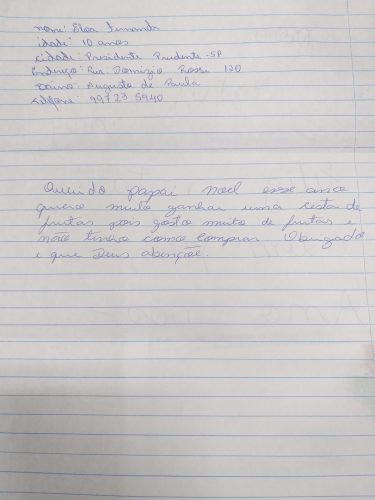 nome: Eloa Fernanda
idade: 10 anos
cidade: Presidente Prudente - SP
Endereço: Rua: Domizio Rosse 130
Bairro: Augusto de Paula
Telefone 99723 5940
Querido papai noel esse ano
quero muito ganhar uma cesta de
frutas pois gosto muito de frutas e
não tenho como comprar. Obrigado
e que Deus abençõe.